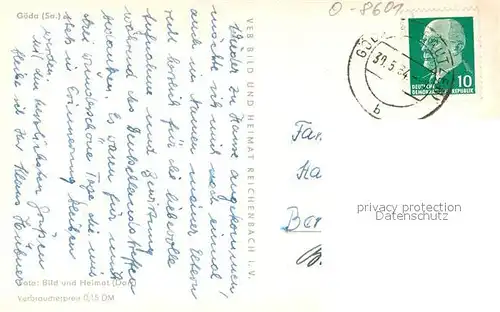 Göda (Sa.)
Wieder zu Hause angekommen,
möchte ich mich noch einmal,
auch im Namen meiner Eltern
recht herzlich für die liebevolle
Aufnahme und Bewirtung
während des Deutschlandtreffens
bedanken. Es waren für mich
drei wunderschöne Tage die mir
stets in Erinnerung bleiben
werden.
Mit den herzlichsten Grüßen
bleibe ich Ihr Klaus Hübner
Foto: Bild und Heimat
Verbraucherpreis 0,15 DM
VEB BILD UND HEIMAT REICHENBACH i. V.
O-8601
30.5.64
b
DEUTSCHE
DEMOKRATISCHE REPUBLIK
10
Fa
Ka
Ber
privacy protection
Datenschutz